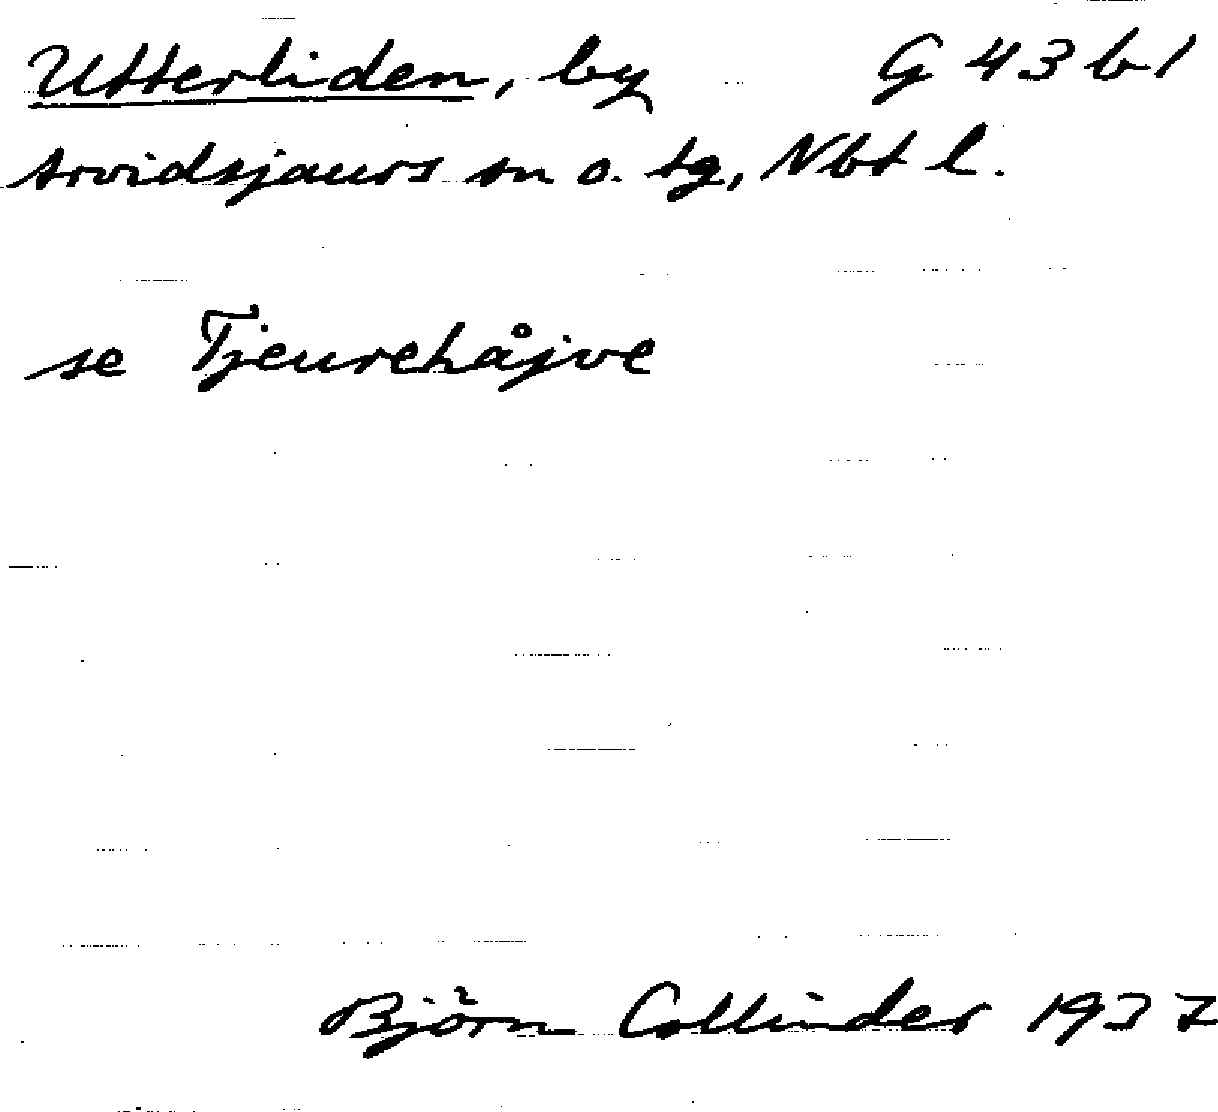 Utterliden, by G 43 b 1
Arvidsjaurs sn o. tg, Nbt l.
se Tjeurehåjve
Björn Collinder 1937